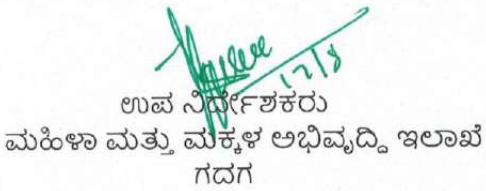 17/8
ಉಪ ನಿರ್ದೇಶಕರು
ಮಹಿಳಾ ಮತ್ತು ಮಕ್ಕಳ ಅಭಿವೃದ್ದಿ ಇಲಾಖೆ
ಗದಗ